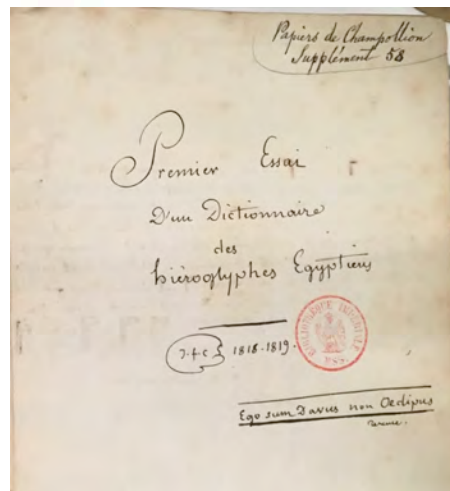 Papiers de Champollion
Supplément 58
Premier Essai
D'un Dictionnaire
des
hiéroglyphes Egyptiens
J.f.c 1818-1819.
BIBLIOTHÈQUE IMPÉRIALE
MSS.
Ego sum Davus non Oedipus